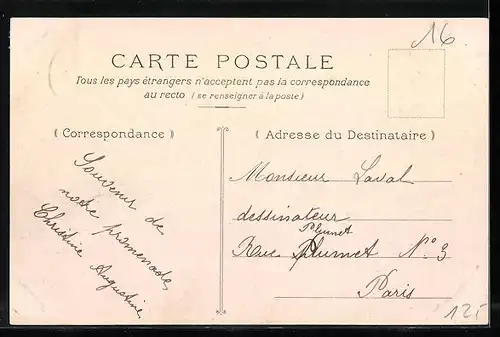 16
CARTE POSTALE
Tous les pays étrangers n'acceptent pas la correspondance
au recto (se renseigner à la poste)
(Correspondance)
Souvenir de
notre promenade
Christine Augustine
(Adresse du Destinataire)
Monsieur Laval
dessinateur
Plumet
Rue Plumet N° 3
Paris
125